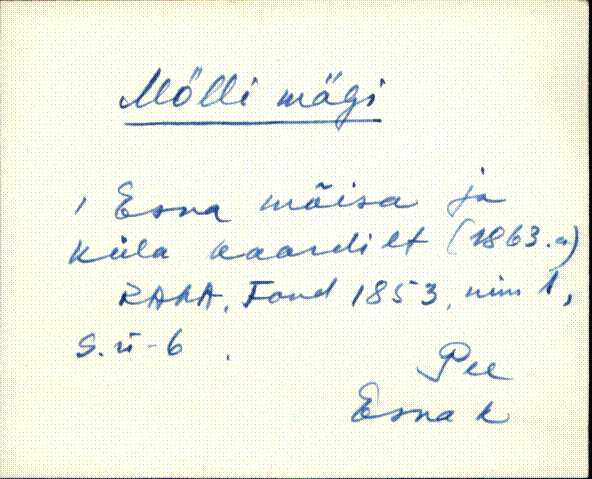 Mölli mägi
, Esna mõisa ja
küla kaardilt (1863.a)
RAKA, Fond 1853, nim 1,
S.ü-6.
Pee
Esna k